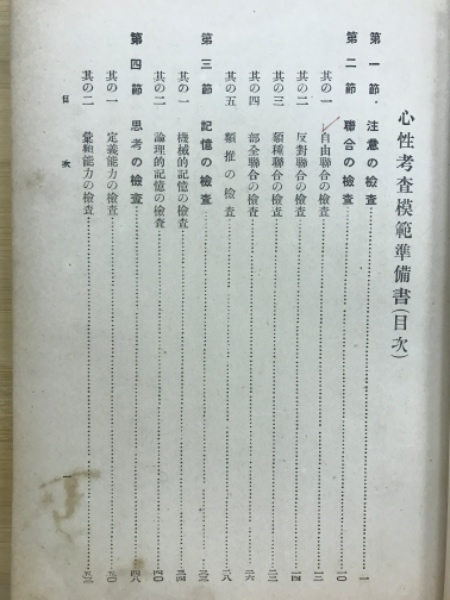 心性考査模範準備書(目次)
第一節. 注意の檢査…………一
第二節 聯合の檢査…………一〇
其の一 自由聯合の檢査…………一二
其の二 反對聯合の檢査…………一四
其の三 類種聯合の檢査…………二〇
其の四 部全聯合の檢査…………二六
其の五 類推の檢査…………二八
第三節 記憶の檢査…………三三
其の一 機械的記憶の檢査…………三四
其の二 論理的記憶の檢査…………四〇
第四節 思考の檢査…………四八
其の一 定義能力の檢査…………五〇
其の二 彙類能力の檢査…………
目次 一